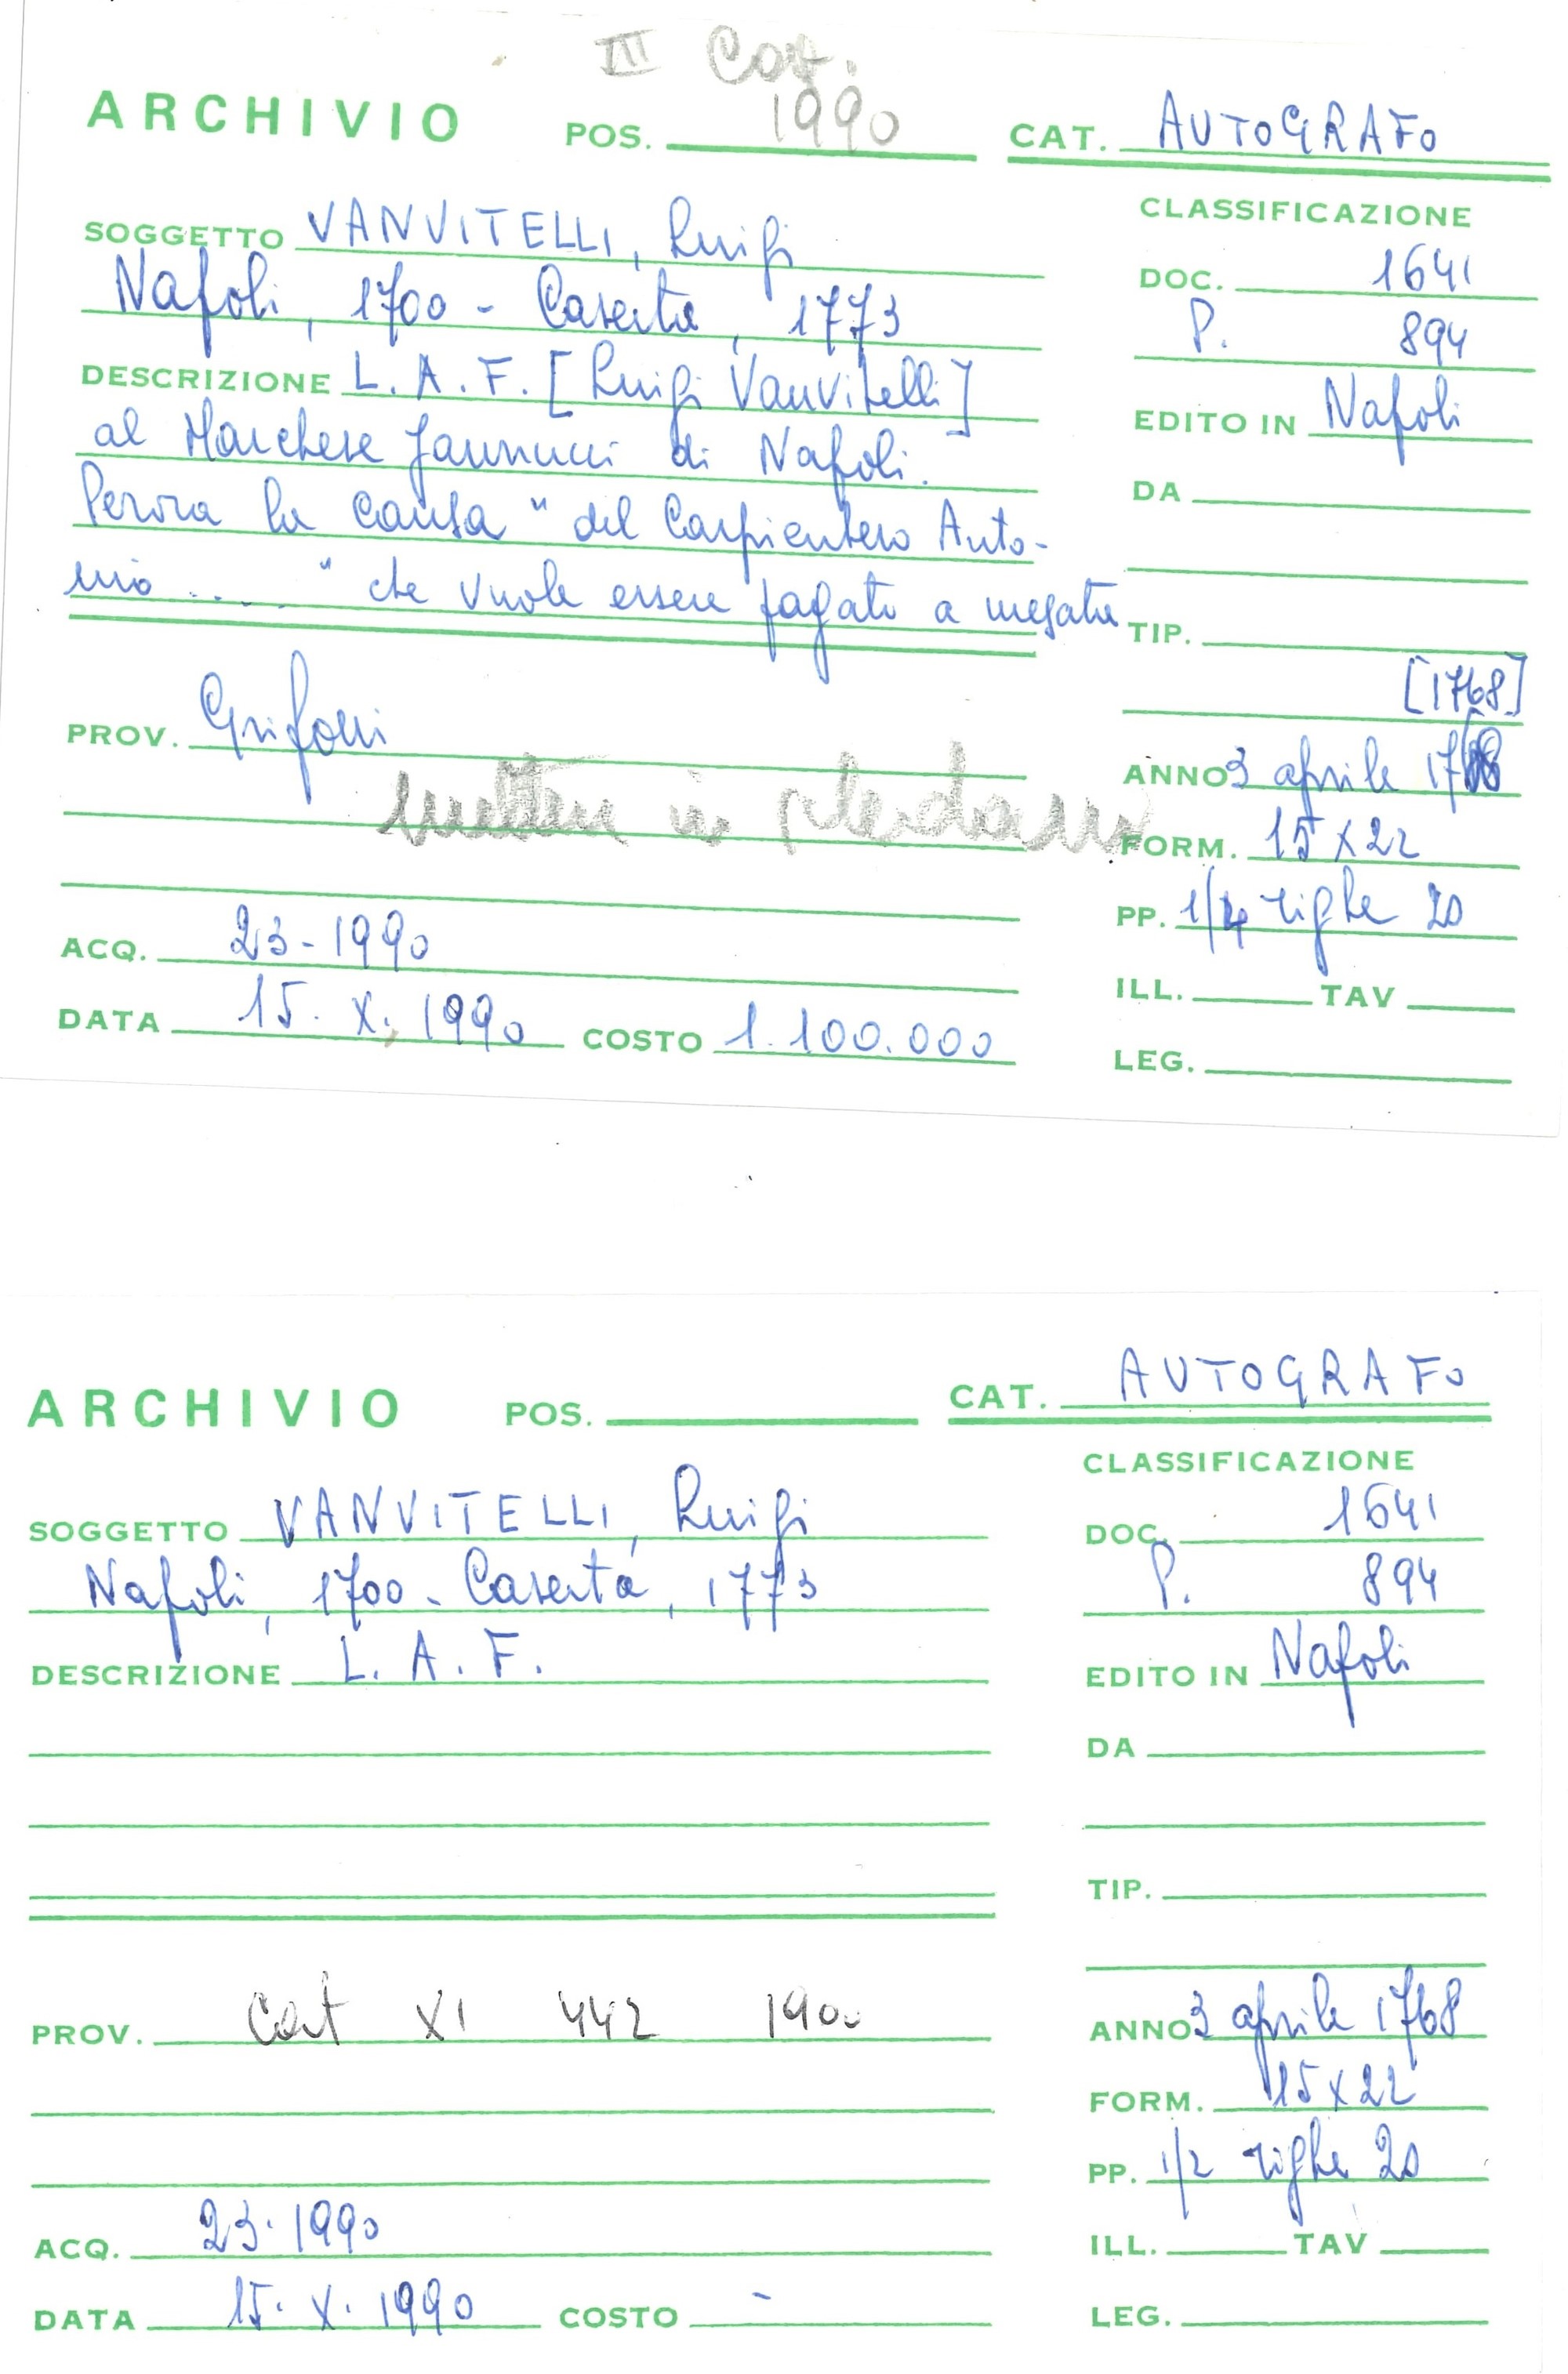 III Cat.
ARCHIVIO POS. 1990 CAT. AUTOGRAFO
SOGGETTO VANVITELLI, Luigi
Napoli, 1700 - Caserta, 1773
DESCRIZIONE L. A. F. [Luigi Vanvitelli]
al Marchese Jannucci di Napoli.
Perora la causa "del Carpientero Anto-
nio ....." che vuole essere pagato a
PROV. Grifoni
mettere in
ACQ. 23-1990
DATA 15. X. 1990 COSTO 1.100.000
CLASSIFICAZIONE
DOC. 1641
P. 894
EDITO IN Napoli
DA
TIP.
[1768]
ANNO 3 aprile 1768
FORM. 15 x 22
PP. 1/4 righe 20
ILL. TAV
LEG.
ARCHIVIO POS. CAT. AUTOGRAFO
SOGGETTO VANVITELLI, Luigi
Napoli, 1700 - Caserta, 1773
DESCRIZIONE L. A. F.
PROV. Cat XI 442 1900
ACQ. 23.1990
DATA 15. X. 1990 COSTO -
CLASSIFICAZIONE
DOC. 1641
P. 894
EDITO IN Napoli
DA
TIP.
ANNO 3 aprile 1768
FORM. 15 x 22
PP. 1/2 righe 20
ILL. TAV
LEG.